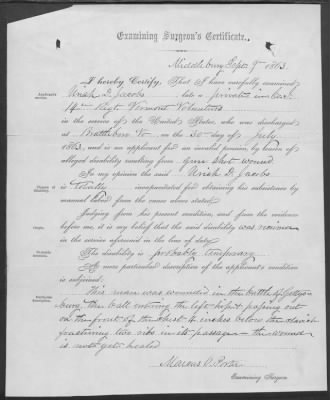 Examining Surgeon's Certificate.
Middlebury Sept. 9th 1863.
I hereby Certify, That I have carefully examined
Uriah D. Jacobs late a private in Co.
14th Regt Vermont Volunteers
in the service of the United States, who was discharged
at Brattleboro Vt. on the 30 day of July
1863, and is an applicant for an invalid pension, by reason of
alleged disability resulting from Gun Shot wound
In my opinion the said Uriah D. Jacobs
is totally incapacitated for obtaining his subsistence by
manual labor from the cause above stated.
Judging from his present condition, and from the evidence
before me, it is my belief that the said disability was
in the service aforesaid in the line of duty.
The disability is probably temporary
A more particular description of the applicant's condition
is subjoined:
This man was wounded in the battle of Gettys-
burg, the ball entering the left & passing out
on the front of the chest 4 inches below the clavicle
fracturing two ribs in its passage - the wound
is not yet healed
Marcus O. Porter
Examining Surgeon.